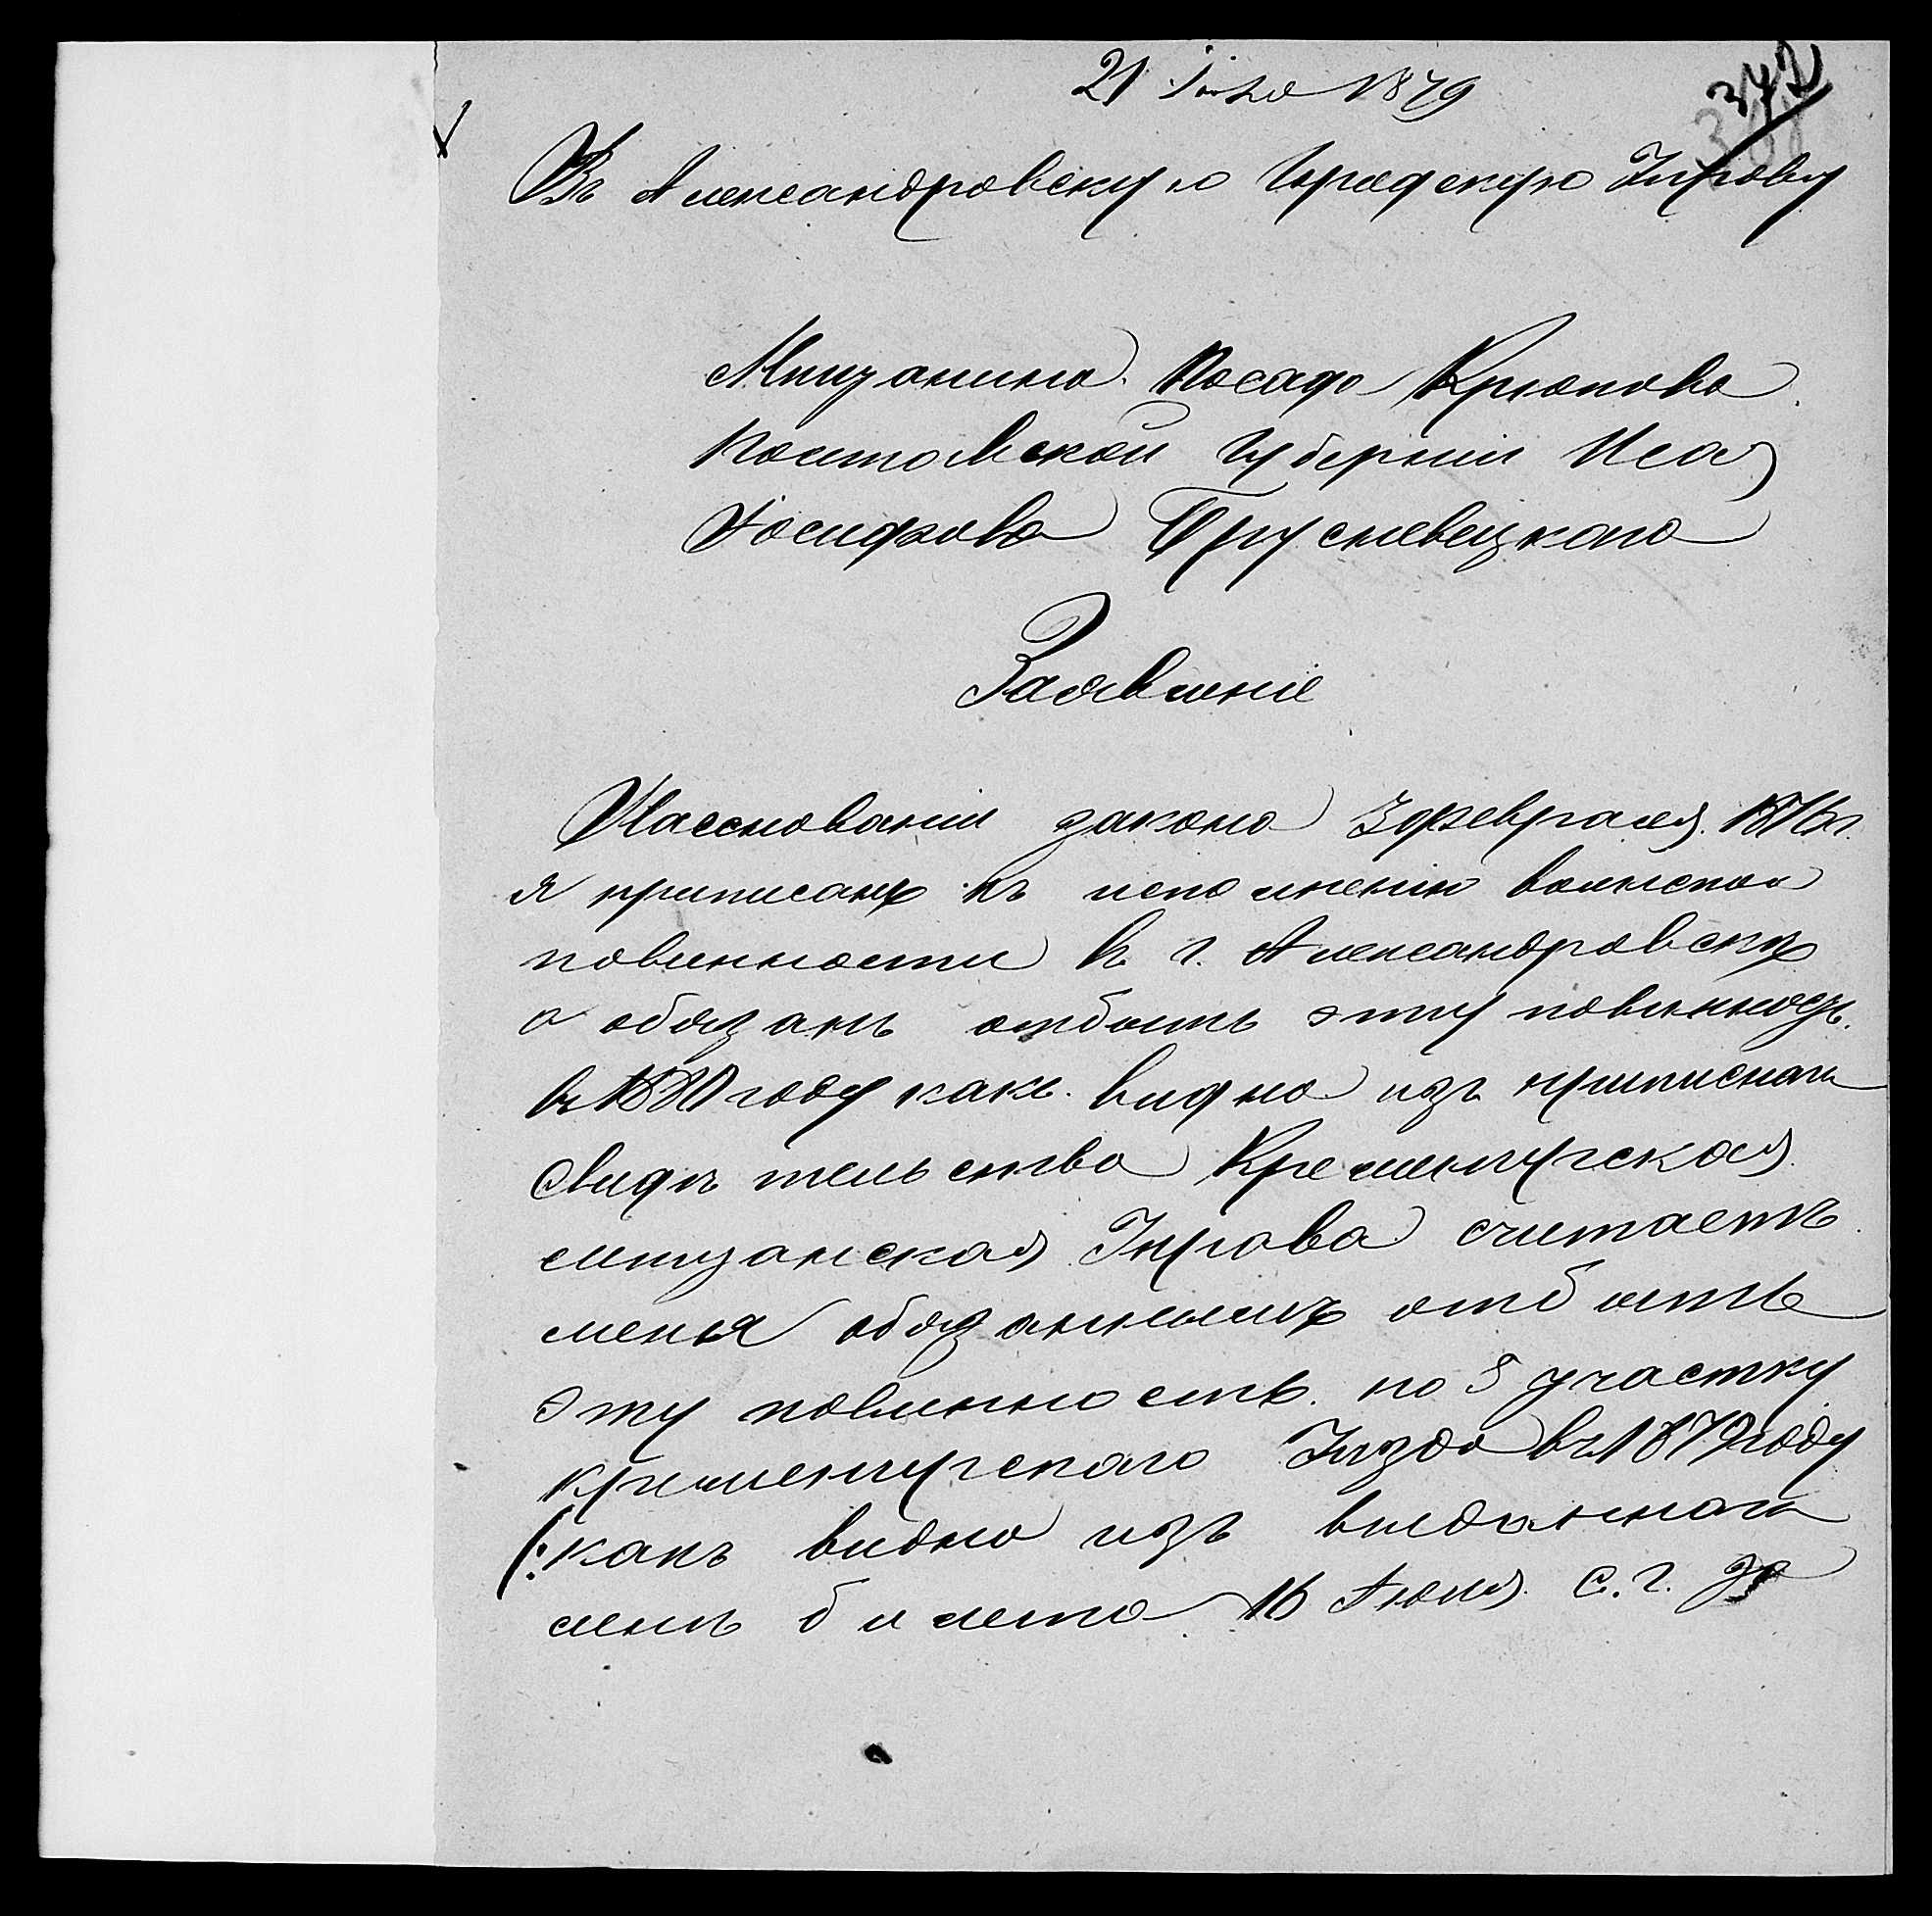 21 Июля 1879
342
Въ Александровскую Городскую Управу
Мѣщанина Посада Крюкова
Полтавской Губерніи Исая
Іосифова Бруслевецкаго
Заявленіе
На основаніи закона 3 февраля 1876 г.
я приписанъ къ исполненію воинской
повинности въ г. Александровскъ
и обязанъ отбыть эту повинность
въ 1880 году какъ видно изъ приписнаго
свидѣтельства Кременчугская
мѣщанская Управа считаетъ
меня обязаннымъ отбыть
эту повинность по 5 участку
Кременчугскаго Уѣзда въ 1879 году
(: какъ видно изъ выданнаго
мнѣ билета 16 Іюля с. г. за